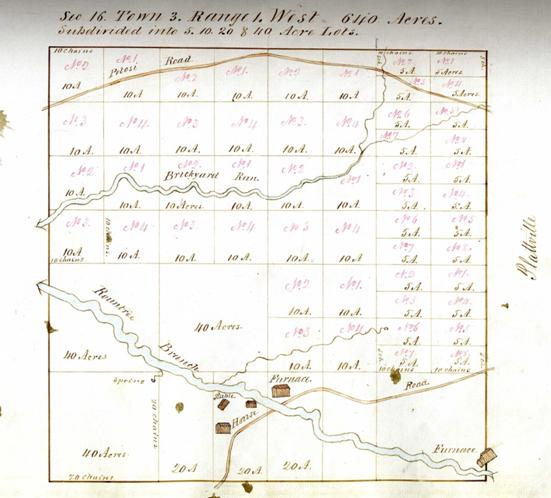 Sec 16. Town 3. Range 1. West 640 Acres.
Subdivided into 5. 10. 20 & 40 Acre Lots.
10 chains
No. 2 No. 1 Road No. 2 No. 1. No. 2 No. 1 No. 2 No. 1
Potosi
10 A 10 A. 10 A. 10 A. 10 A. 10 A. 5 A. 5 Acres
5 A. 5 Acres
No. 3 No. 4. No. 3 No. 4 No. 3. No. 4 No. 6 No. 5
10 A. 10 A. 10 A. 10 A. 10 A. 10 A. 5 A. 5 A.
No. 7
5 A. 5 A.
No. 2 No. 1 No. 2. No. 1 No. 2 No. 1 No. 2. No. 1
Brickyard Run.
10 A. 10 A. 10 Acres 10 A. 10 A. 10 A. 5 A. 5 A.
No. 3 No. 4.
5 A. 5 A.
No. 3. No. 4 No. 3. No. 4 No. 3 No. 4 No. 6 No. 5
5 A. 5 A.
No. 7 No. 8.
10 A 10 A. 10 A. 10 A. 10 A. 10 A. 5 A. 5 A.
10 chains
No. 2 No. 1. No. 2 No. 1.
10 A. 10 A. 5 A. 5 A.
No. 3 No. 4.
5 A. 5 A.
Rountree
Branch
40 Acres.
No. 3 No. 4 No. 6 No. 5
10 A. 10 A. 5 A. 5 A.
No. 7 No. 8
5 A. 5 A.
40 Acres
10 chains 10 chains
Spring
20 chains
Furnace.
Road.
House
Furnace
40 Acres
20 A 20 A. 20 A.
20 chains
Plattville